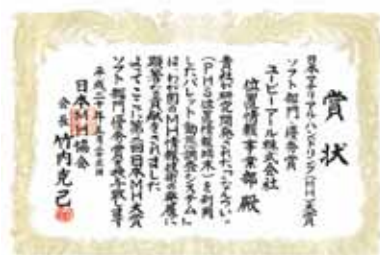 賞状
日本マテリアル・ハンドリング(MH)大賞
ソフト部門・優秀賞
ユーピーアール株式会社
位置情報事業部 殿
貴社が配定開発された「なんつい」
(PHS位置情報端末)を利用
したパレット動態調査システム」
は、わが国のMH情報技術の発展に
顕著な貢献をされました
よってここに第二回日本MH大賞
ソフト部門優秀賞を授与致します
平成二十年五月二十三日
日本MH協会
会長 竹内克己